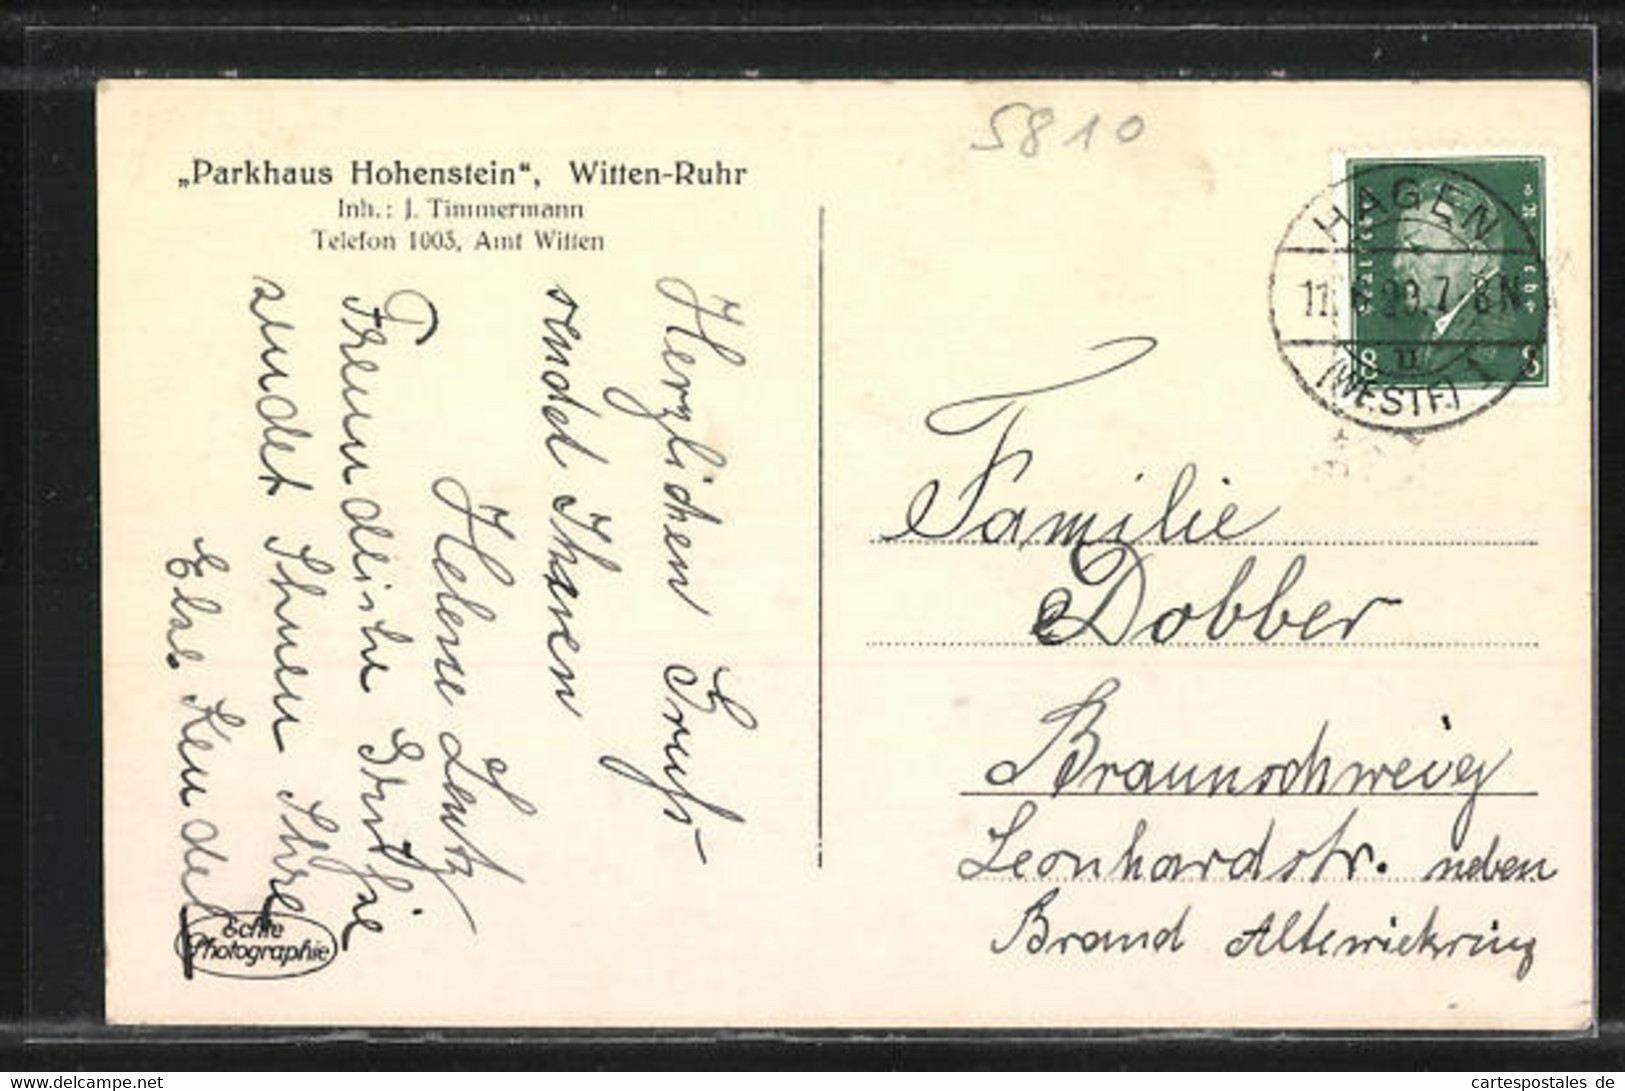 5810
„Parkhaus Hohenstein“, Witten-Ruhr
Inh.: J. Timmermann
Telefon 1003, Amt Witten
HAGEN
(WESTF.) 1
8 8
Herzlichen Gruß
sendet Ihnen
Helene Lentz
Freundliche Grüße
sendet Ihnen Ihre
Else
Echte
Photographie
Familie
Dobber
Braunschweig
Leonhardstr. neben
Brand Altewiekring
www.cartespostales.de